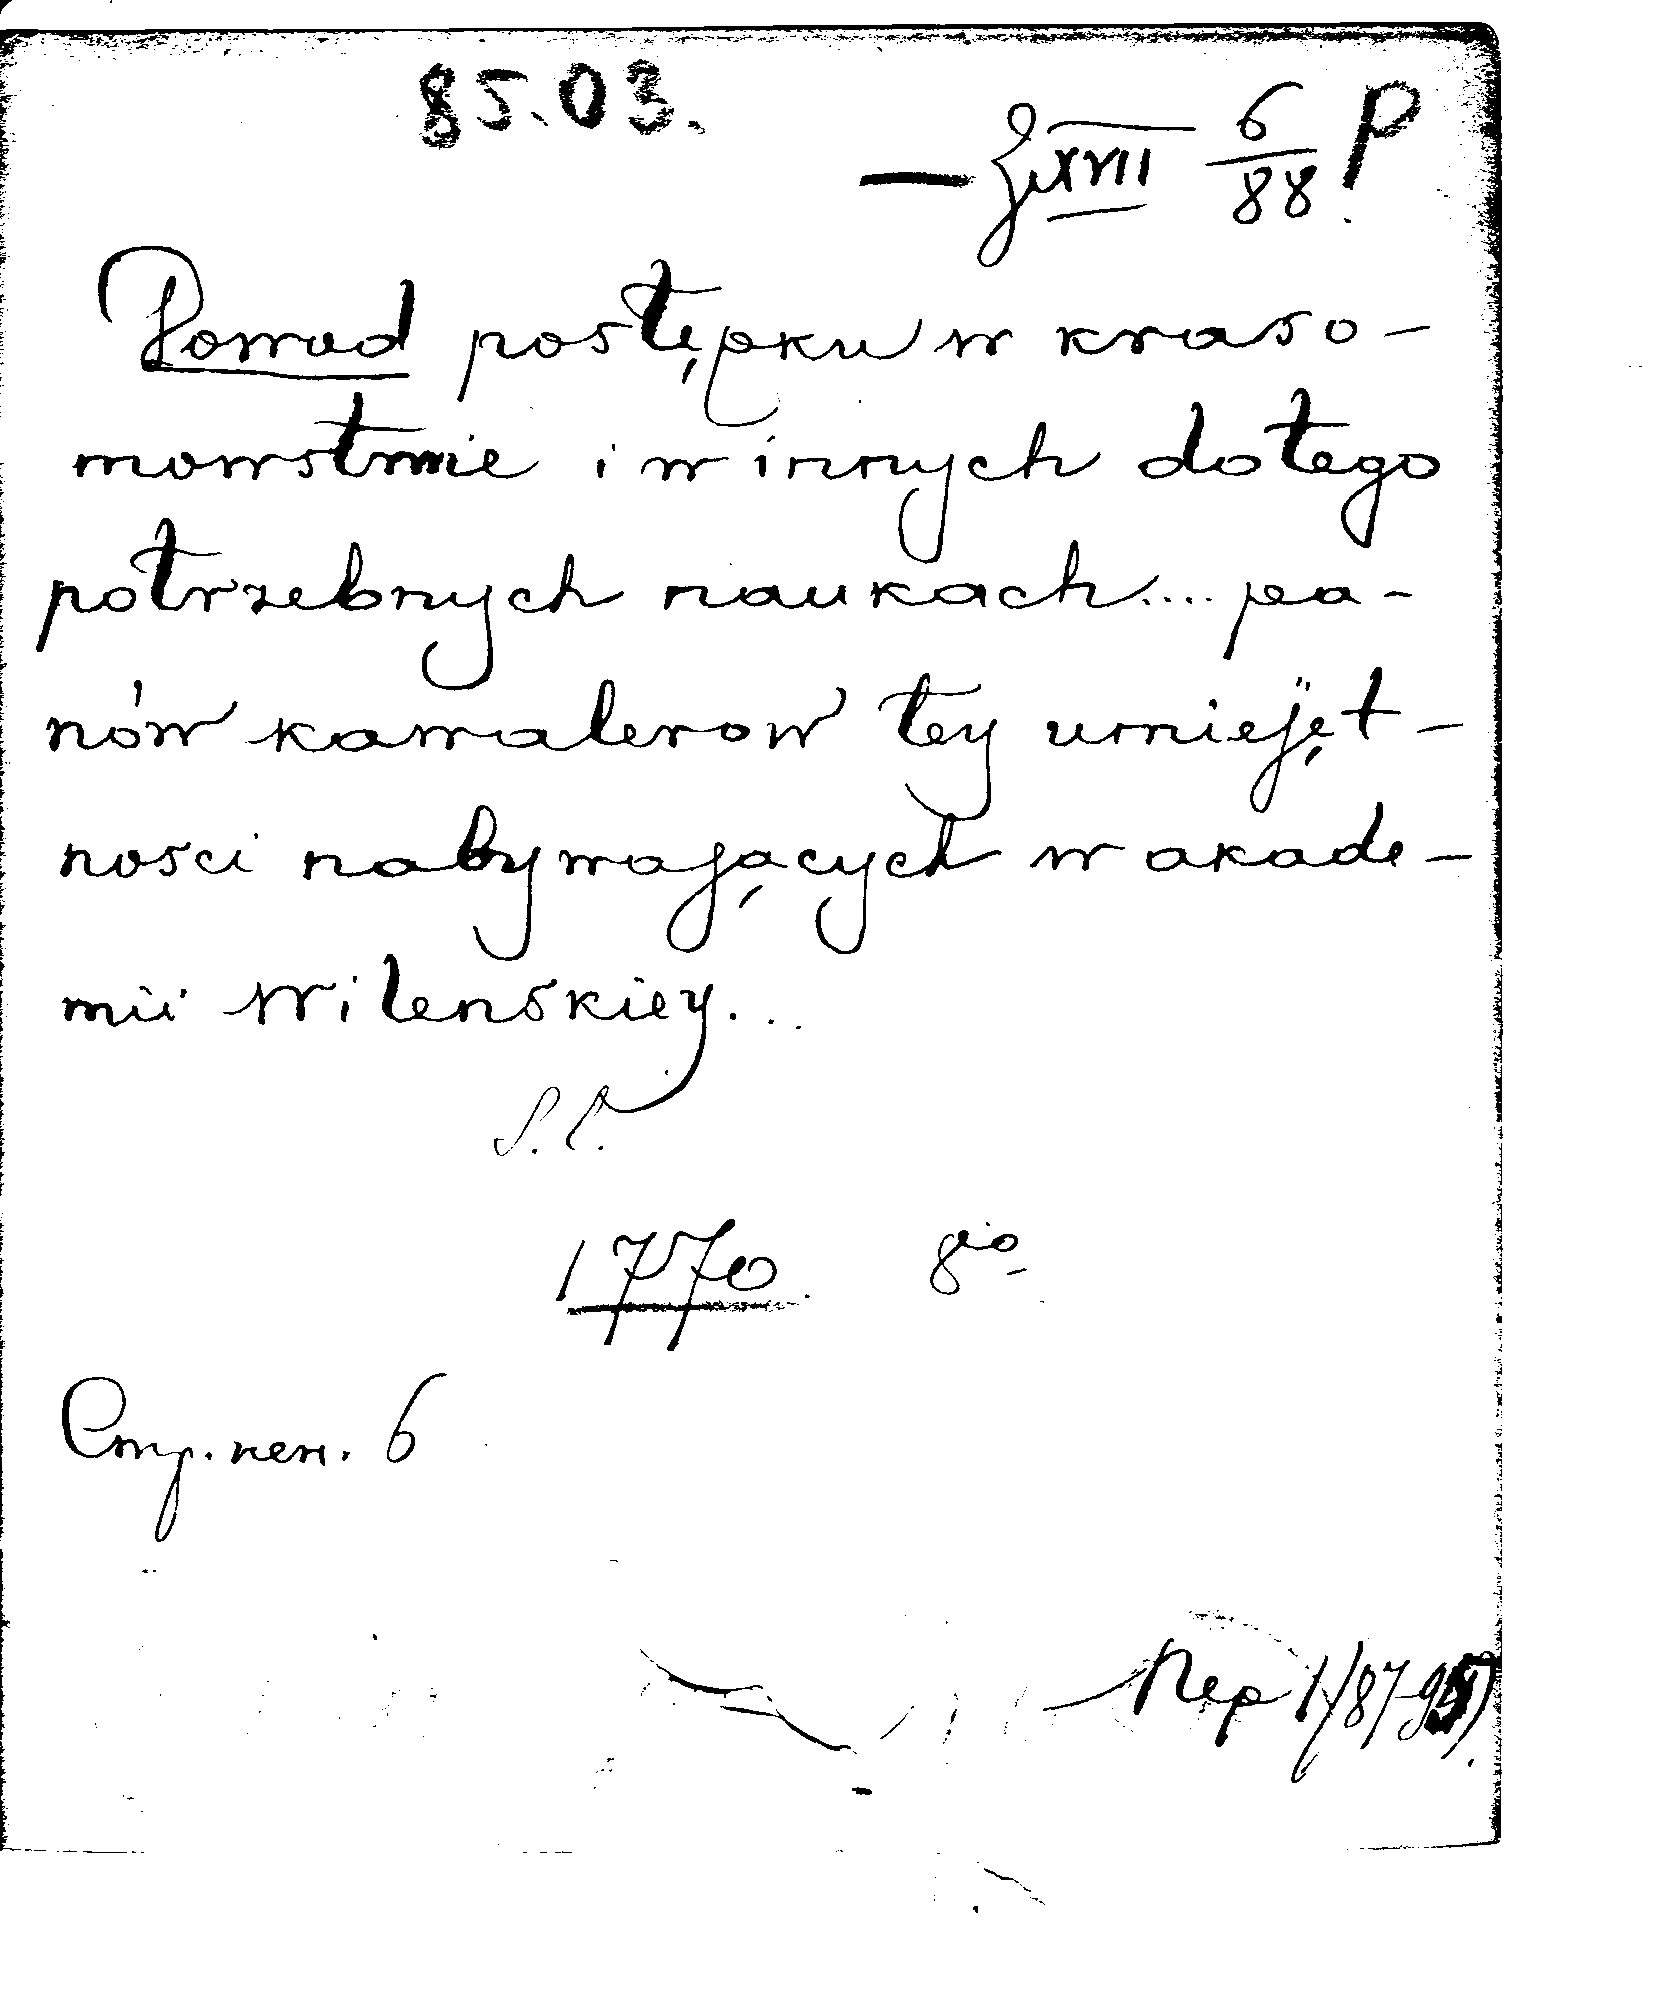 85.03.
XVII 6/88 P
Powod postępku w kraso-
mowstwie i w innych dotego
potrzebnych naukach.... pa-
nów kawalerow tey umiejęt-
ności nabywających w akade-
mii Wilenskiey...
S. l.
1770 8º
Стр. нен. 6
Пер